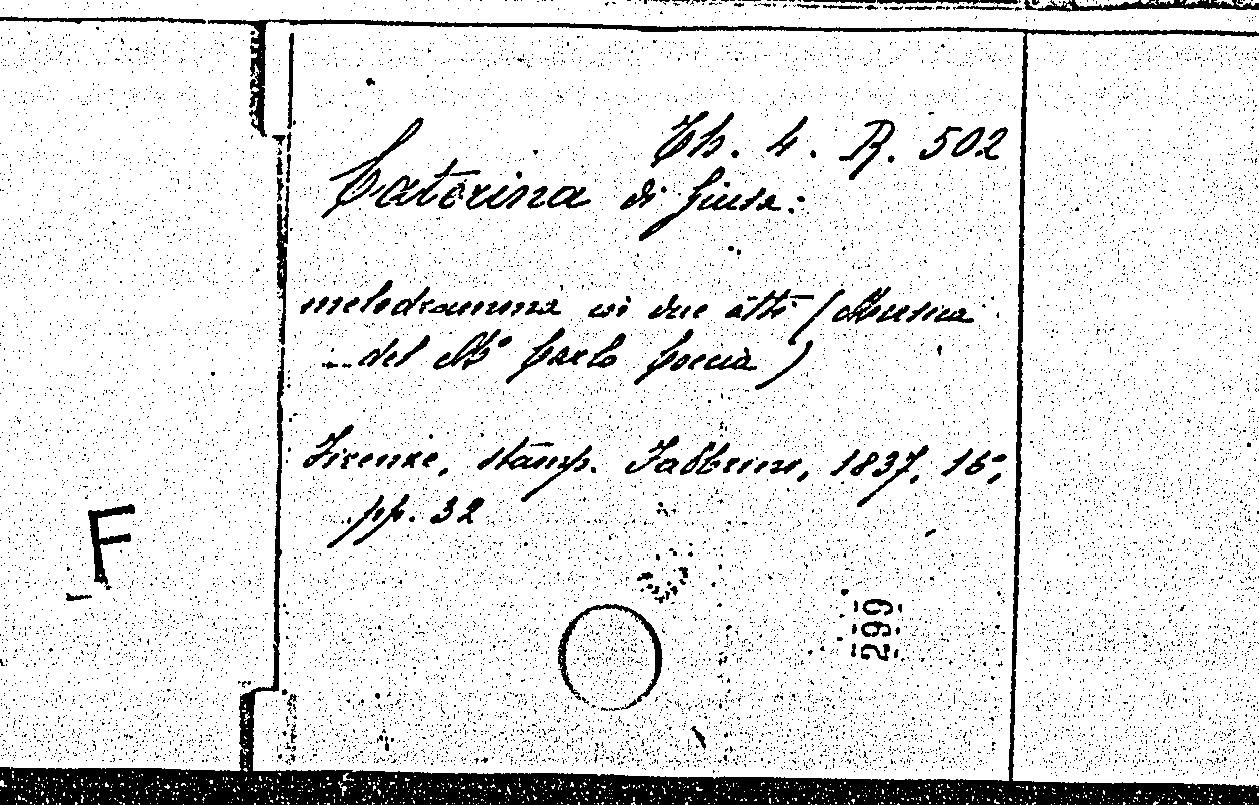 Th. 4. R. 502
Caterina di Guisa:
melodramma in due atti (Musica
del Mº Carlo Coccia)
Firenze, stamp. Fabbrini, 1837, 16º,
pp. 32
F
299